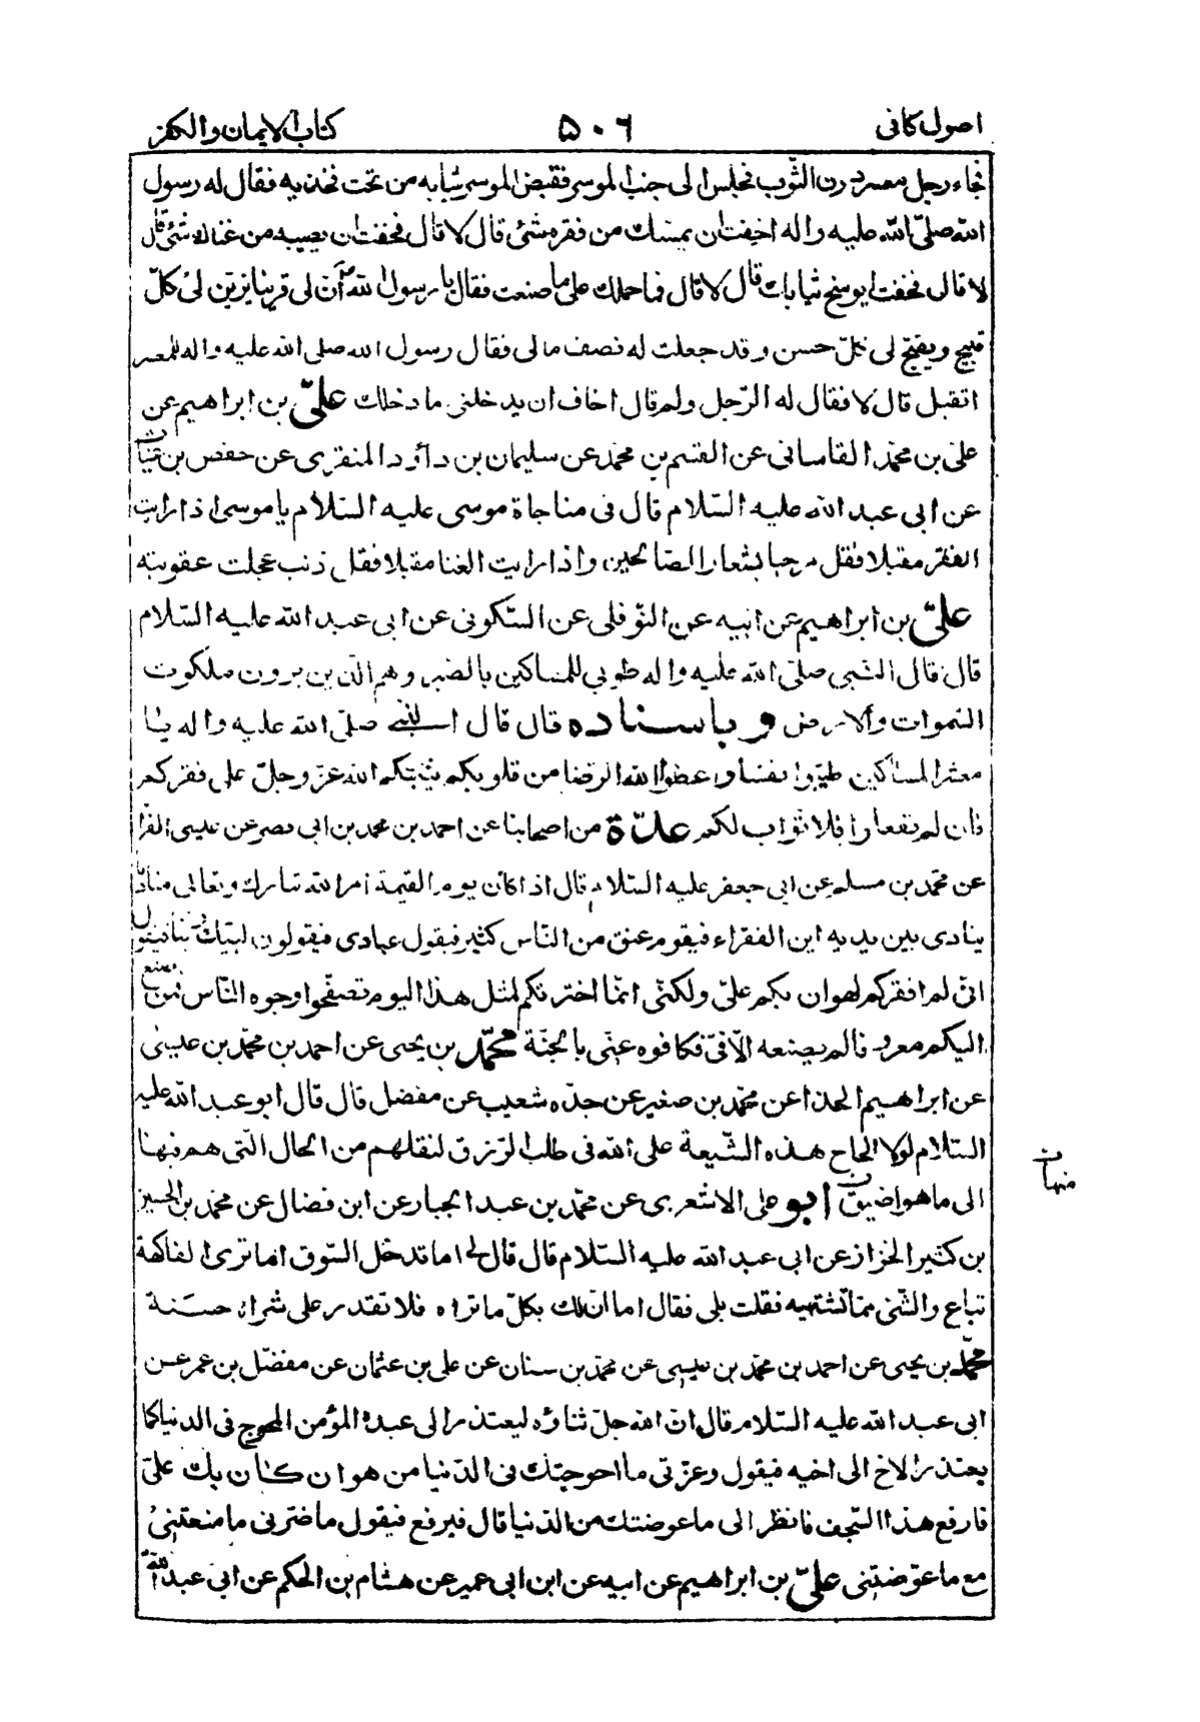 اصول كافى ۵۰۶ كتاب الايمان والكفر
فجاء رجل معسر درن الثّوب فجلس الى جنب الموسر فقبض الموسر ثيابه من تحت فخذيه فقال له رسول
الله صلّى الله عليه واله اخفت ان يمسّك من فقره شئ قال لا قال فخفت ان يصيبه من غناك شئ قال
لا قال فخفت ان يوسخ ثيابك قال لا قال فما حملك على ما صنعت فقال يا رسول الله انّ لى قرينا يزيّن لى كلّ
قبيح ويقبّح لى كلّ حسن وقد جعلت له نصف مالى فقال رسول الله صلى الله عليه واله للمعسر
اتقبل قال لا فقال له الرّجل ولم قال اخاف ان يدخلنى ما دخلك علىّ بن ابراهيم عن
على بن محمّد القاسانى عن القسم بن محمّد عن سليمان بن داود المنقرى عن حفص بن غياث
عن ابى عبد الله عليه السّلام قال فى مناجاة موسى عليه السّلام يا موسى اذا رايت
الفقر مقبلا فقل مرحبا بشعار الصّالحين واذا رايت الغنا مقبلا فقل ذنب عجلت عقوبته
علىّ بن ابراهيم عن ابيه عن النّوفلى عن السّكونى عن ابى عبد الله عليه السّلام
قال قال النّبى صلّى الله عليه واله طوبى للمساكين بالصّبر وهم الّذين يرون ملكوت
السّموات والارض وباسناده قال قال النّبى صلّى الله عليه واله يا
معشر المساكين طيّبوا نفسا واعطوا الله الرّضا من قلوبكم يثبكم الله عزّ وجلّ على فقركم
فان لم تفعلوا فلا ثواب لكم عدّة من اصحابنا عن احمد بن محمد بن ابى نصر عن عيسى الفرّا
عن محمّد بن مسلم عن ابى جعفر عليه السّلام قال اذا كان يوم القيمة امر الله تبارك وتعالى مناديا
ينادى بين يديه اين الفقراء فيقوم عنق من النّاس كثير فيقول عبادى فيقولون لبّيك ربّنا فيقول
انّى لم افقركم لهوان بكم علىّ ولكنّى انّما اخترتكم لمثل هذا اليوم تصفّحوا وجوه النّاس فمن صنع
اليكم معروفا لم يصنعه الّا فىّ فكافوه عنّى بالجنّة محمّد بن يحيى عن احمد بن محمّد بن عيسى
عن ابراهيم الحذّا عن محمّد بن صغير عن جدّه شعيب عن مفضل قال قال ابو عبد الله عليه
السّلام لولا الحاح هذه الشّيعة على الله فى طلب الرّزق لنقلهم من الحال الّتى هم فيها
منها ن
الى ما هو اضيق ابو على الاشعرى عن محمّد بن عبد الجبار عن ابن فضال عن محمد بن الحسين
بن كثير الخزاز عن ابى عبد الله عليه السّلام قال قال لى اما تدخل السّوق اما ترى الفاكهة
تباع والشّئ ممّا تشتهيه فقلت بلى فقال اما انّ لك بكلّ ما تراه فلا تقدر على شراء حسنة
محمّد بن يحيى عن احمد بن محمّد بن عيسى عن محمّد بن سنان عن على بن عثمان عن مفضّل بن عمر عن
ابى عبد الله عليه السّلام قال انّ الله جلّ ثناؤه ليعتذر الى عبده المؤمن المحوج فى الدنيا كما
يعتذر الاخ الى اخيه فيقول وعزّتى ما احوجتك فى الدّنيا من هوان كان بك علىّ
فارفع هذا السّجف فانظر الى ما عوضتك من الدّنيا قال فيرفع فيقول ما ضرّنى ما منعتنى
مع ما عوّضتنى علىّ بن ابراهيم عن ابيه عن ابن ابى عمير عن هشام بن الحكم عن ابى عبد الله